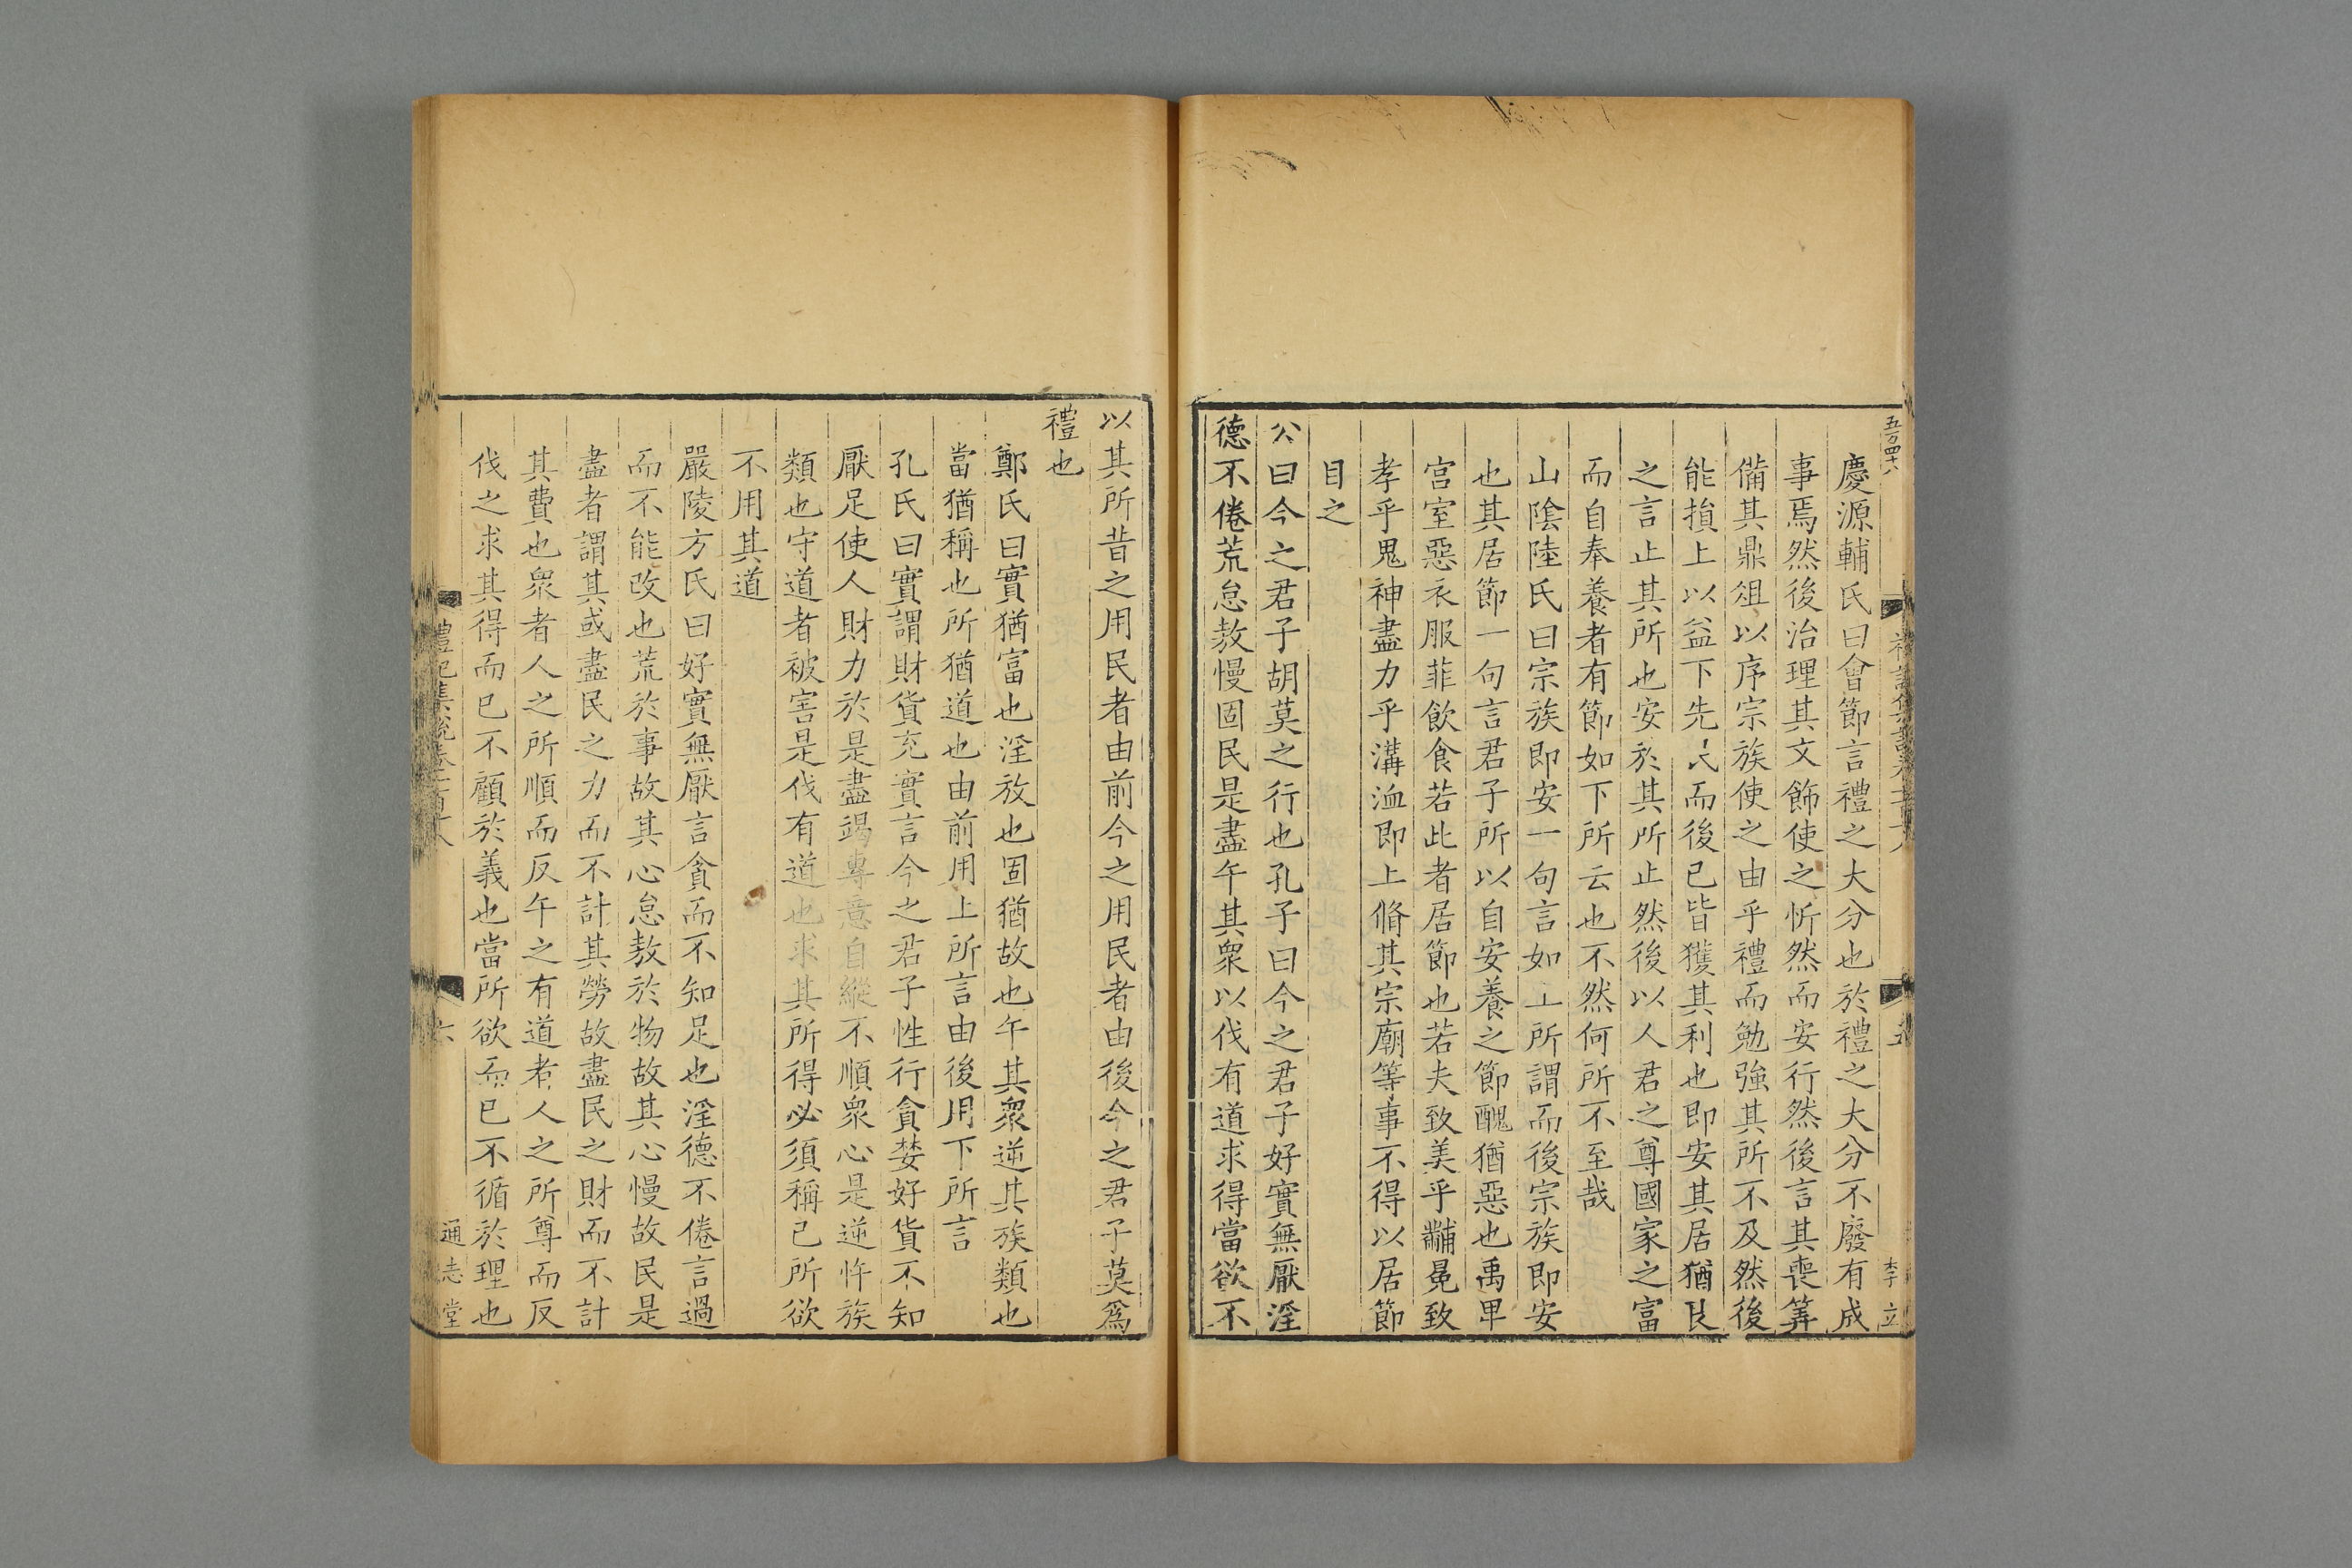 五百四十八
慶源輔氏曰會節言禮之大分也於禮之大分不廢有成
事焉然後治理其文飾使之忻然而安行然後言其喪筭
備其鼎俎以序宗族使之由乎禮而勉強其所不及然後
能損上以益下先民而後已皆獲其利也即安其居猶艮
之言止其所也安於其所止然後以人君之尊國家之富
而自奉養者有節如下所云也不然何所不至哉
山陰陸氏曰宗族即安一句言如上所謂而後宗族即安
也其居節一句言君子所以自安養之節醜猶惡也禹卑
宮室惡衣服菲飲食若此者居節也若夫致美乎黼冕致
孝乎鬼神盡力乎溝洫即上脩其宗廟等事不得以居節
目之
公曰今之君子胡莫之行也孔子曰今之君子好實無厭淫
德不倦荒怠敖慢固民是盡午其衆以伐有道求得當欲不
李立
以其所昔之用民者由前今之用民者由後今之君子莫爲
禮也
鄭氏曰實猶富也淫放也固猶故也午其衆逆其族類也
當猶稱也所猶道也由前用上所言由後用下所言
孔氏曰實謂財貨充實言今之君子性行貪婪好貨不知
厭足使人財力於是盡竭專意自縱不順衆心是逆忤族
類也守道者被害是伐有道也求其所得必須稱己所欲
不用其道
嚴陵方氏曰好實無厭言貪而不知足也淫德不倦言過
而不能改也荒於事故其心怠敖於物故其心慢故民是
盡者謂其或盡民之力而不計其勞故盡民之財而不計
其費也衆者人之所順而反午之有道者人之所尊而反
伐之求其得而已不顧於義也當所欲而已不循於理也
禮記集說卷
六
通志堂